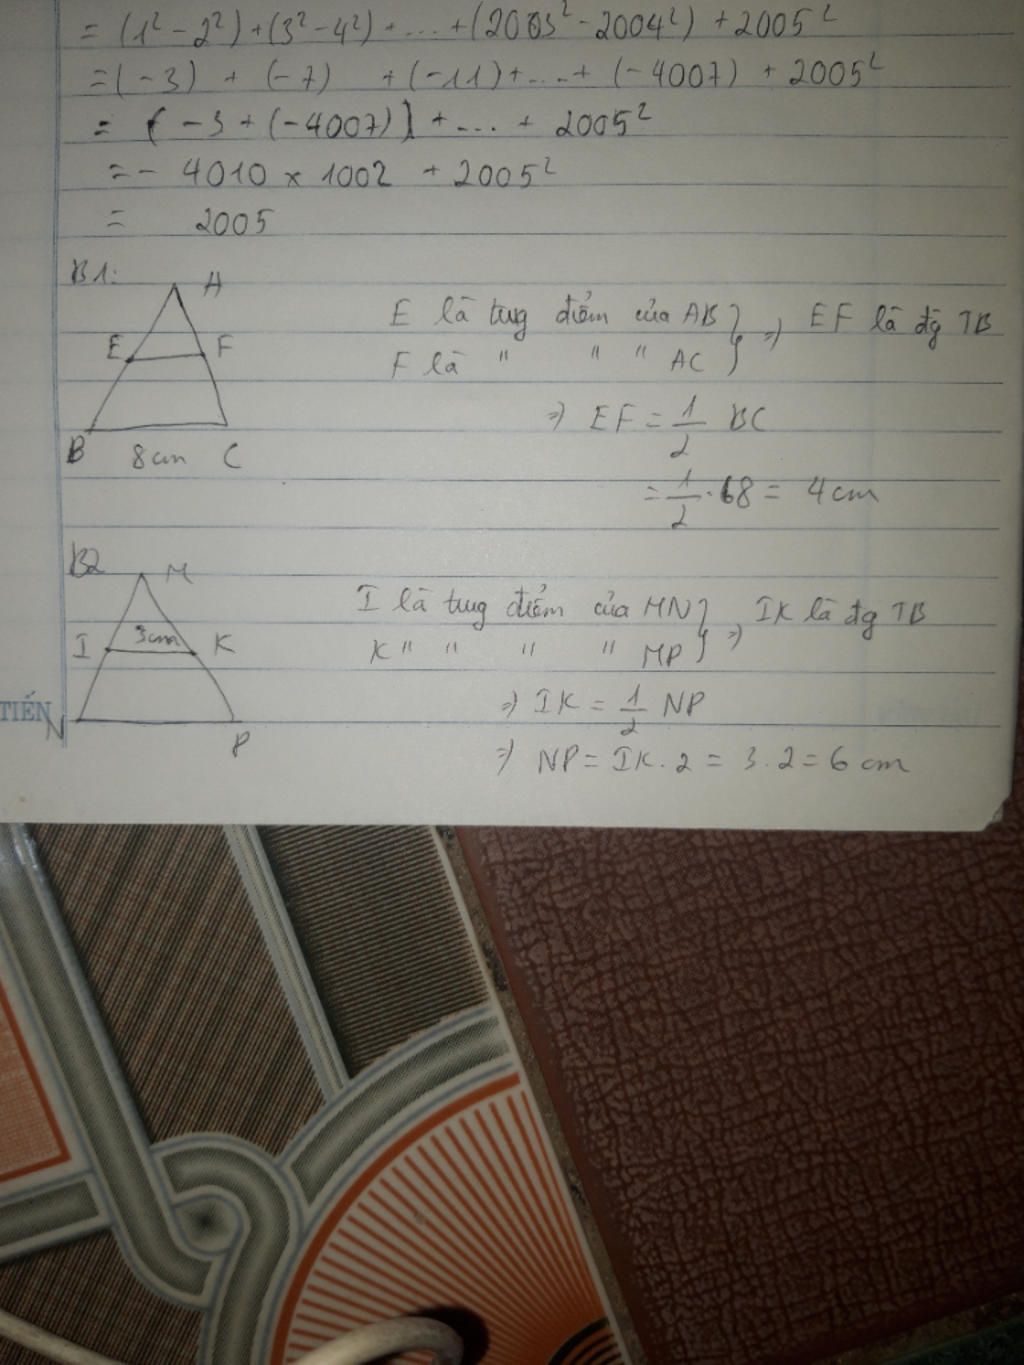 = (1² - 2²) + (3² - 4²) + ... + (2003² - 2004²) + 2005²
= (-3) + (-7) + (-11) + ... + (-4007) + 2005²
= (-3 + (-4007)) + ... + 2005²
= - 4010 x 1002 + 2005²
= 2005
B1:
A
E F
B 8cm C
E là tug điểm của AB } => EF là đg TB
F là " " " AC }
=> EF = 1/2 BC
= 1/2 . 68 = 4cm
B2
M
I 3cm K
N P
I là tug điểm của MN } => IK là đg TB
K " " " " MP }
=> IK = 1/2 NP
=> NP = IK . 2 = 3 . 2 = 6 cm
TIẾN